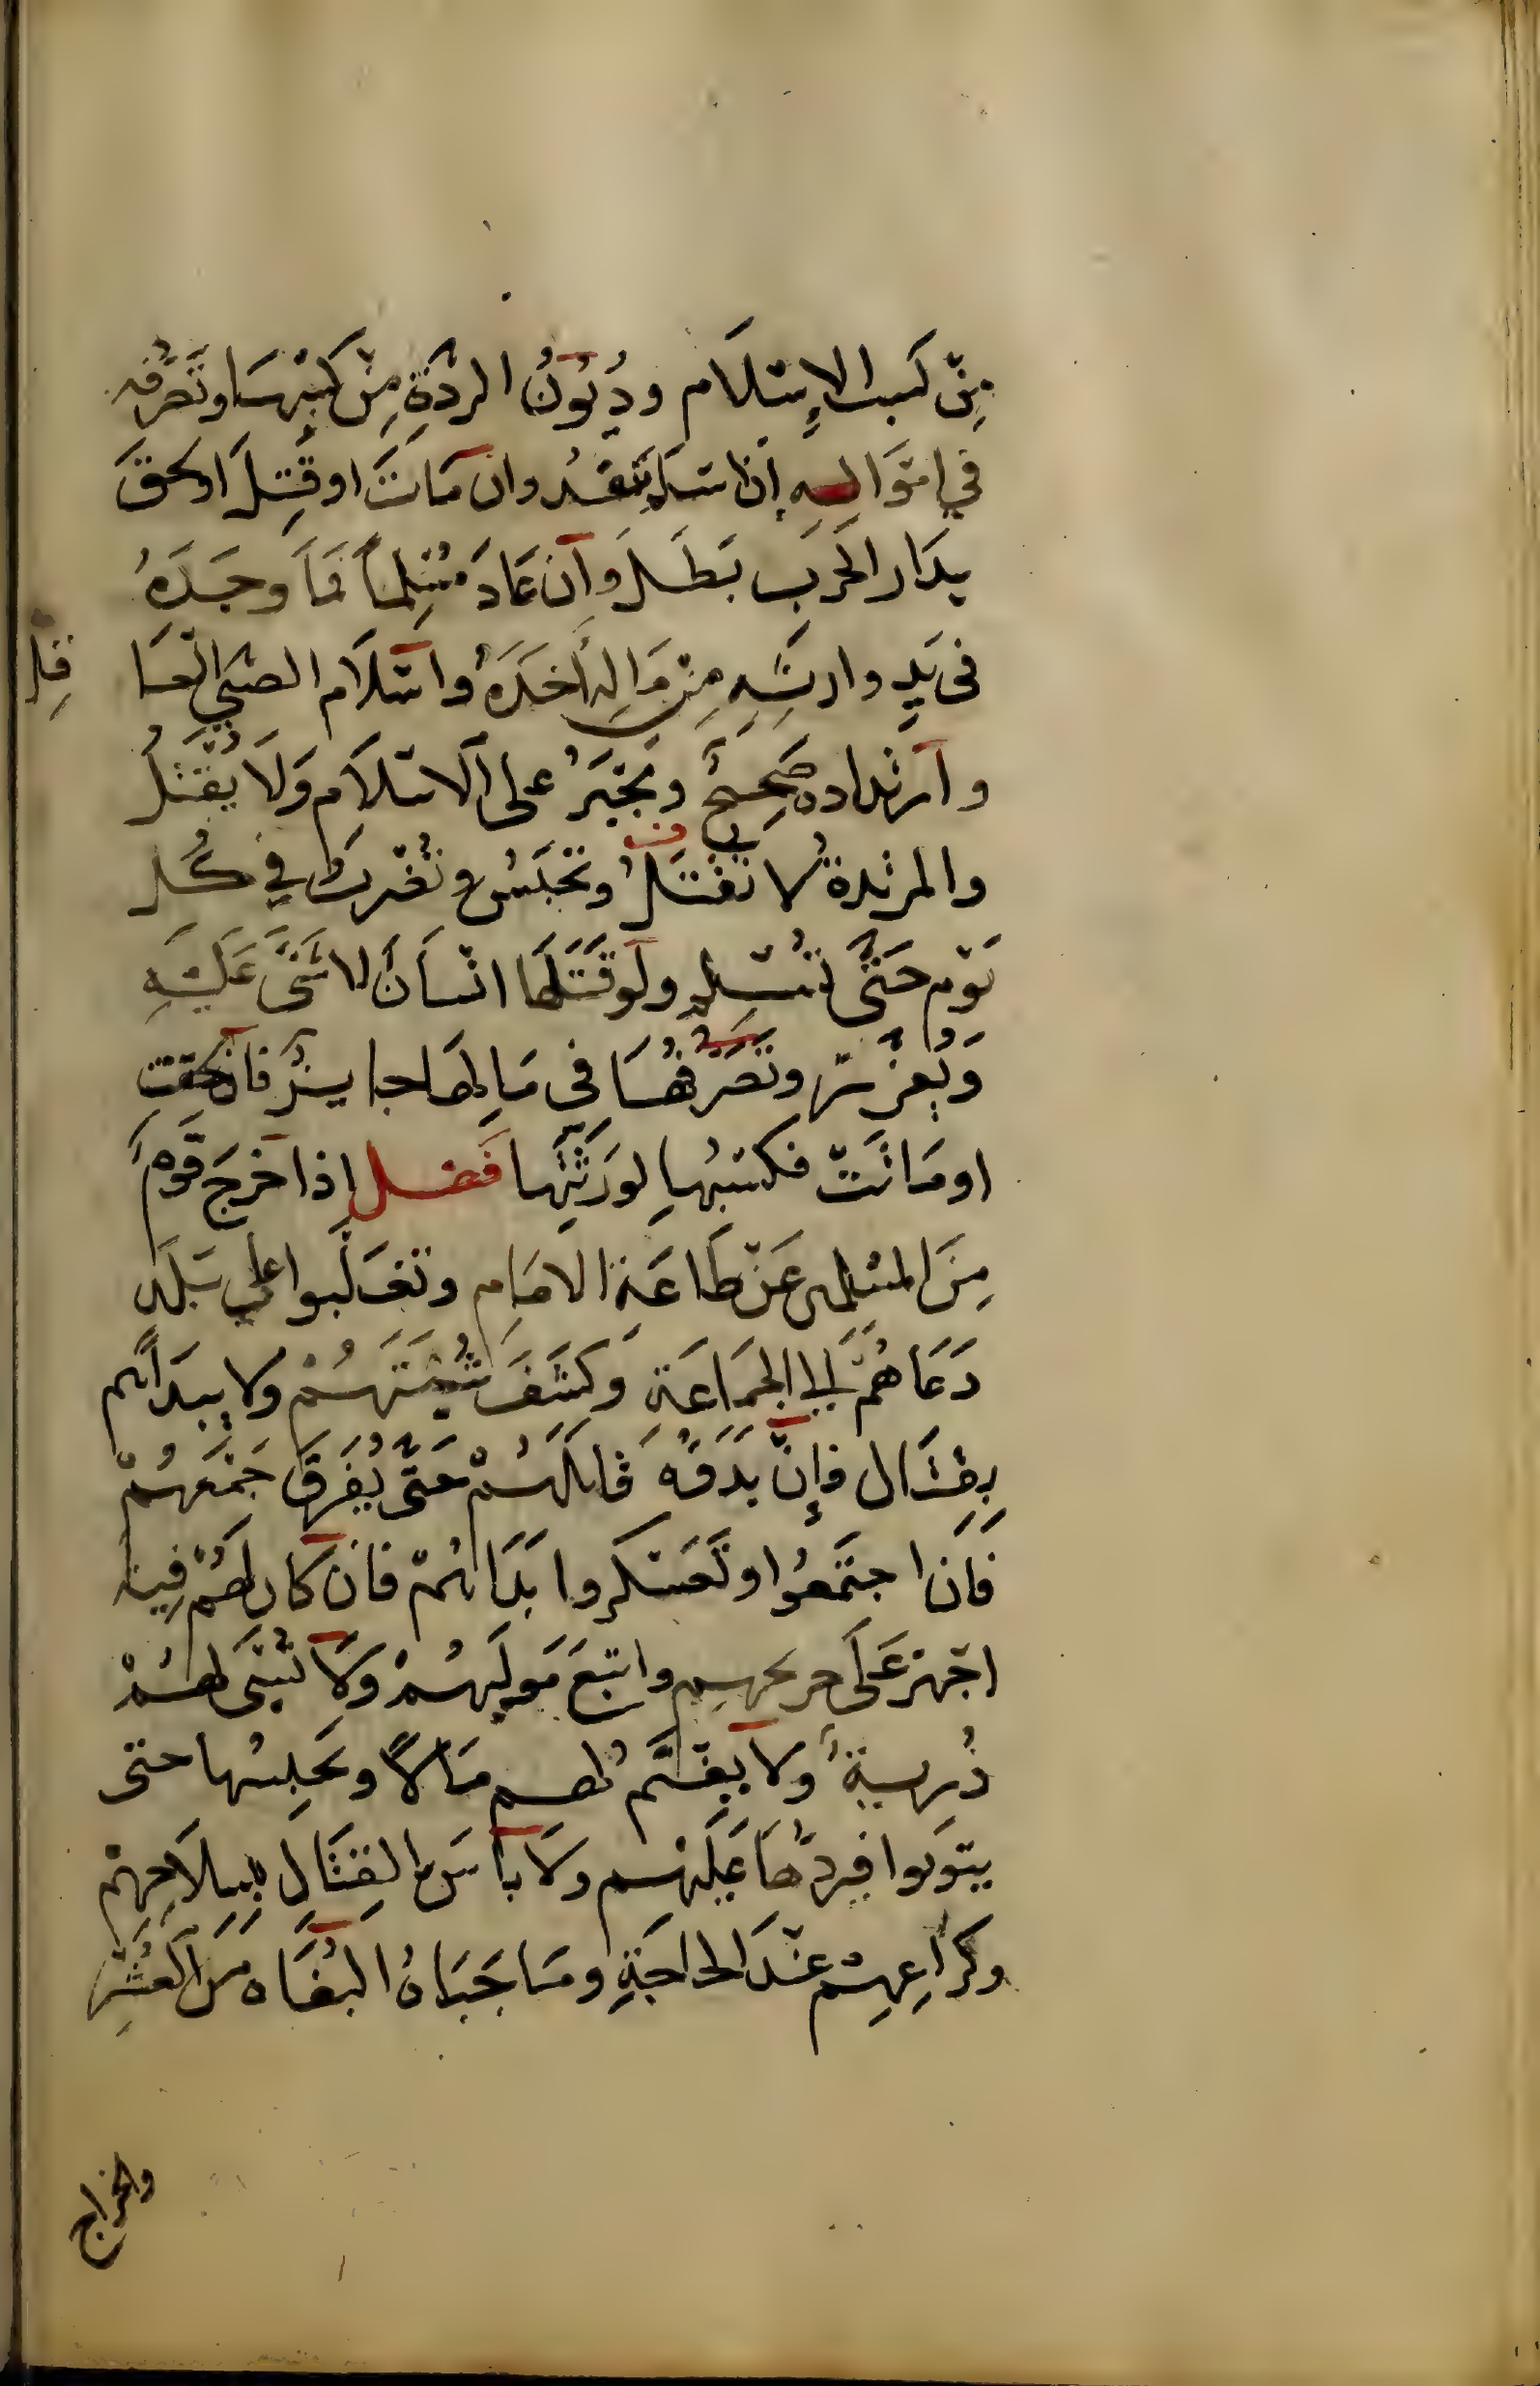 مِنْ كَسبِ الإِسْلَام ودُيُونُ الردَةِ مِنْ كَسْبِهَا وتَصَرُّفُه
في امْوَالِهِ إن اسْلَم نَفَذ وان مَاتَ او قُتِلَ او لحقَ
بِدَارِ الحَرب بَطَلَ وان عَادَ مُسْلِماً فمَا وجَدَهُ
فى يَدِ وارثِهِ مِنْ مَالِهِ أخَذَهُ واسْلَام الصَبي العَا
قِل
وارتداده صَحِيحٌ ويُجْبَرُ على الاسْلَامِ وَلَا يُقْتَلُ
والمرتدة لا تُقْتَلُ وتحْبَسُ وتُضْرب في كُل
يَوْم حَتَّى تُسْلِم ولَو قَتَلَهَا انْسَانٌ لا شَىَ عَلَيْهِ
وَيُعَزَّر وتَصَرُّفُهَا فِي مَالِهَا جايزٌ فان لحِقت
او مَاتَتْ فكسْبُهَا لوَرَثَتِها فصل اذا خَرَجَ قَوْمٌ
مِنَ المسْلمين عَنْ طَاعَةِ الامَامِ وتغَلبوا على بَلَدٍ
دَعَاهُمْ إلى الجَمَاعَةِ وَكشَفَ شُبْهَتَهُمْ ولا يبدَأهم
بِقِتَال فإنْ بدَؤه قاتلهُمْ حَتَّى يُفَرِق جَمْعَهُمْ
فَان اجتَمَعُوا وتَعَسْكَروا بَدَأهُمْ فان كان لَهُمْ فِيه
اجْهزَ عَلَى جريحهِم واتبَعَ مُوليهُمْ وَلَا تُسْبَى لهُمْ
ذُريةٌ ولا يقسَم لهُم مَالاً ويحبِسُها حتى
يتوبوا فيردَّهَا عَلَيْهِم ولَا باسَ بالقِتَالِ بسِلَاحِهمْ
وكرَاعِهِمْ عنْدَ الحاجَةِ ومَا جَبَاهُ البُغَاه مِنَ العُشْرِ
والخراج